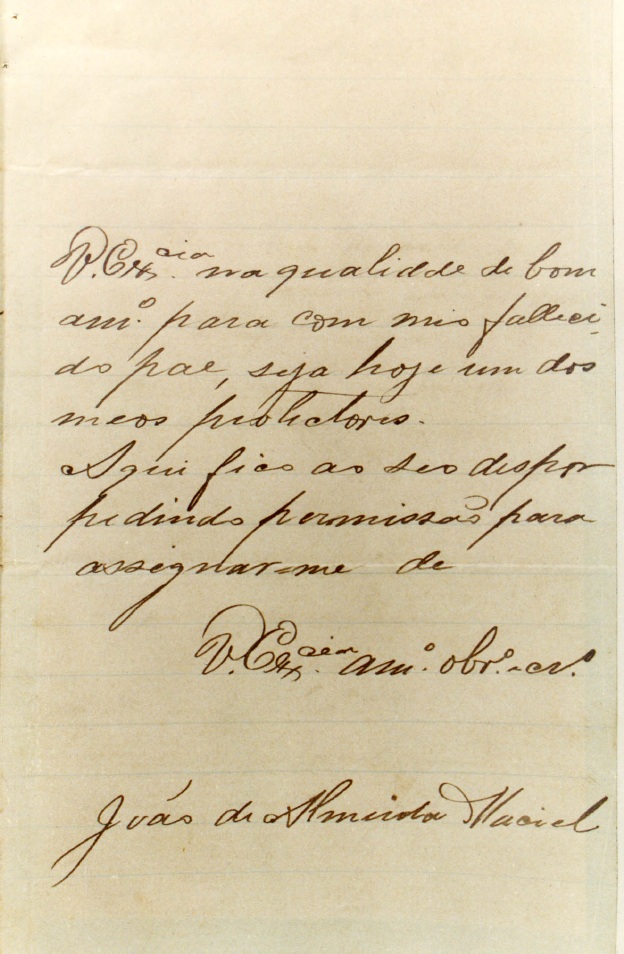 V. Ex.cia na qualidade de bom
am.o para com meo falleci-
do pae, seja hoje um dos
meos protectores.
Aqui fico ao seo dispor
pedindo permissão para
assignar-me de
V. Ex.cia am.o obr.o cr.o
João de Almeida Maciel